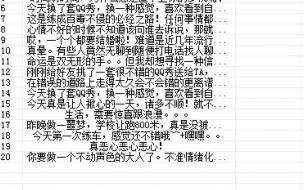 6 今天换了套QQ秀，换一种感觉，喜欢看到自...
7 这是练成百毒不侵的必经之路！任何事情都...
8 心情不好的时候不知道该向谁去诉说，那就...
9 哎，一个个都要结婚啦！难道是近几年流行...
10 真晕。有些人竟然无聊到随便打电话找人聊...
11 命运是双无形的手。。但我却想寻找一种信...
12 刚刚给好友挑了一套很不错的QQ秀送给TA，...
13 在错误的道路上走得太久会不会错的更离谱...
14 今天换了套QQ秀，换一种感觉，喜欢看到自...
15 今天真是让人揪心的一天，诸多不顺！就不...
16 生活，需要惊喜跟浪漫。。。
17 昨晚做一噩梦，学校让跑800米，真是没被...
18 今天第一次练车，感觉还不错哦~嘿嘿。。
19 真恶心恶心恶心！
20 你要做一个不动声色的大人了。不准情绪化...